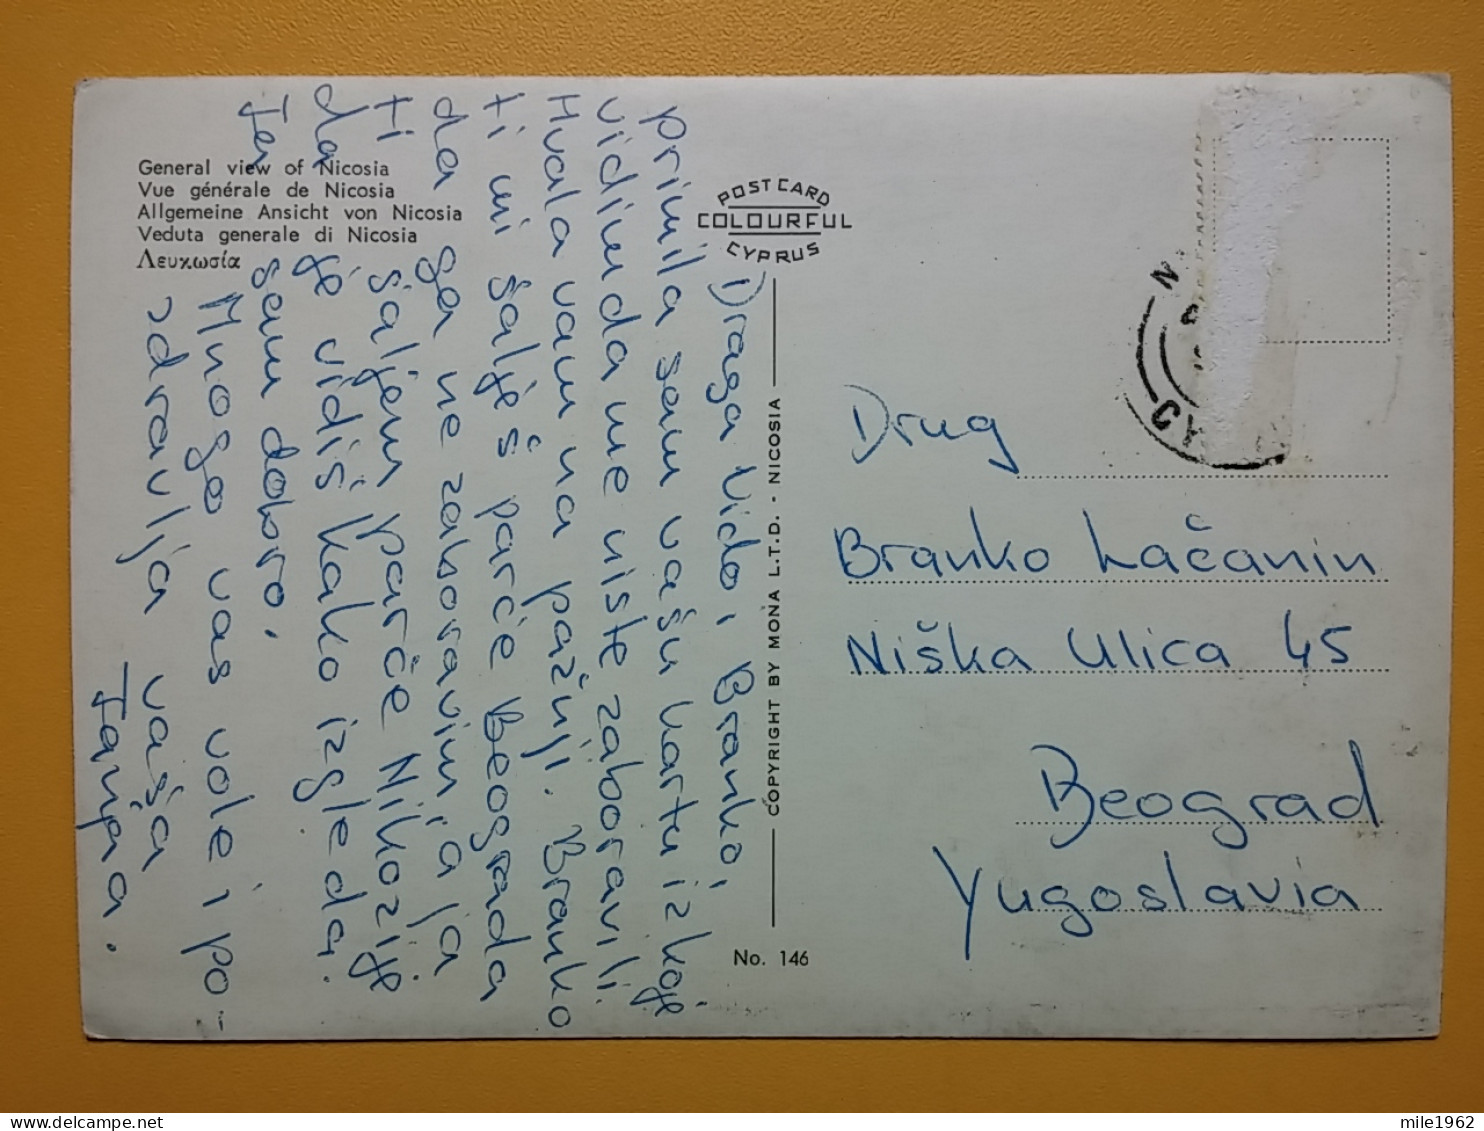 General view of Nicosia
Vue générale de Nicosia
Allgemeine Ansicht von Nicosia
Veduta generale di Nicosia
Λευκωσία
POST CARD
COLOURFUL
CYPRUS
COPYRIGHT BY MONA L.T.D. - NICOSIA
No. 146
Draga Vido, Branko,
primila sam vašu kartu iz koje
vidim da me niste zaboravili.
Hvala vam na pažnji. Branko
ti mi šalješ parče Beograda
da ga ne zaboravim, a ja
ti šaljem parče Nikozije
da je vidiš kako izgleda.
Ja sam dobro.
Mnogo vas vole i po-
zdravlja vaša
Tanja.
Drug
Branko Lačanin
Niška Ulica 45
Beograd
Yugoslavia
mile1962